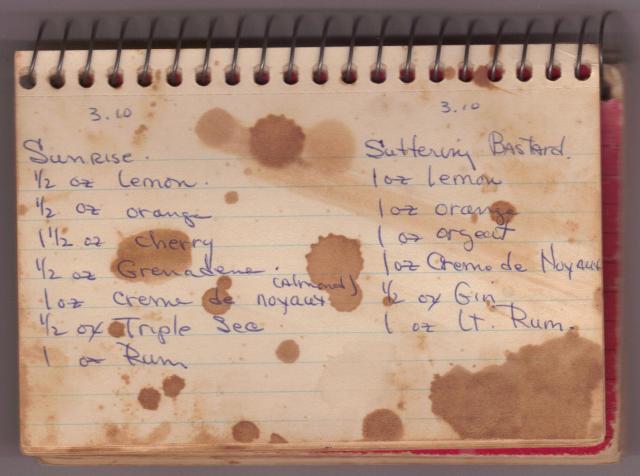 3.10
Sunrise.
1/2 oz Lemon.
1/2 oz orange
1 1/2 oz cherry
1/2 oz Grenadene.
1 oz creme de noyaux (Almond)
1/2 oz Triple Sec
1 oz Rum
3.10
Suffering Bastard.
1 oz Lemon
1 oz orange
1 oz orgeat
1 oz Creme de Noyaux
1/2 oz Gin
1 oz Lt. Rum.